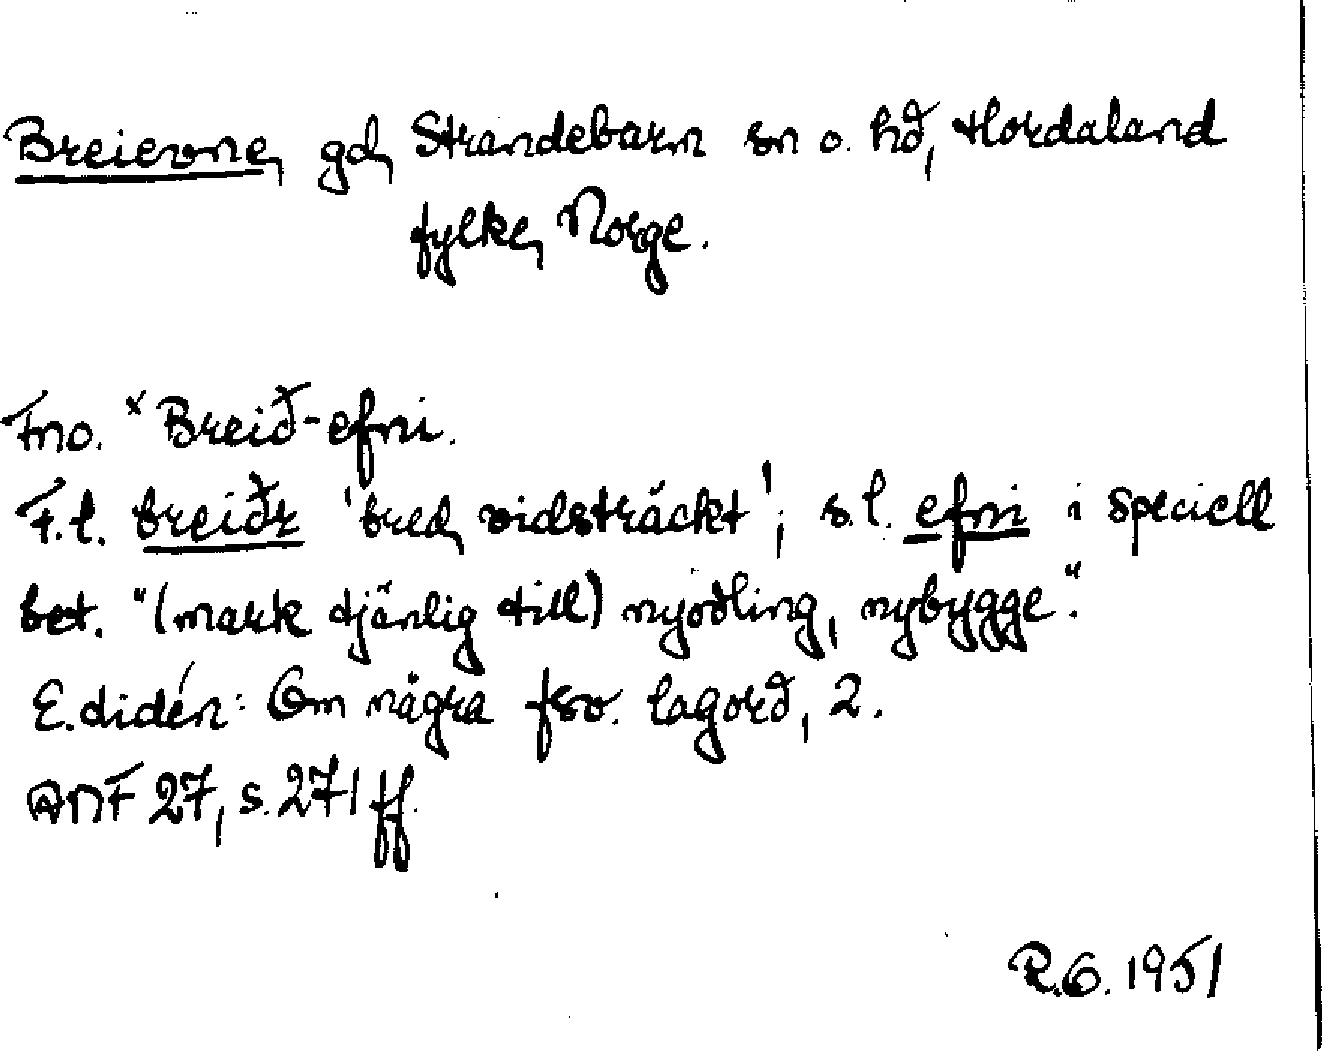 Breievne, gd, Strandebarn sn o. hd, Hordaland
fylke, Norge.
Fno. *Breið-efni.
F.l. breiðr 'bred, vidsträckt'; s.l. efni i speciell
bet. "(mark tjänlig till) nyodling, nybygge".
E. Lidén: Om några fsv. lagord, 2.
ANF 27, s. 271 ff.
R.G. 1951